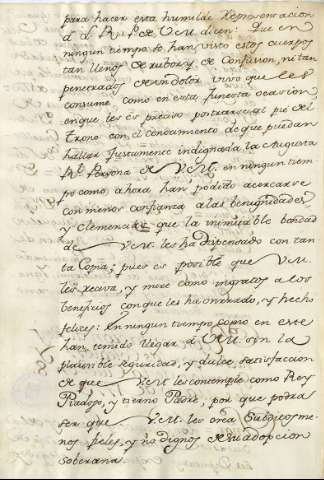 para hacer esta humilde Representacion
á l. R. P. de V.M. dicen: Que en
ningun tiempo se han visto estos cuerpos
tan llenos de rubor y de Confusion, ni tan
penetrados de un dolor vivo que les
consume, como en esta funesta ocasion
en que les es preciso postrarse al pie del
trono con el conocimiento de que puedan
hallar justamente indignada la Augusta
Rl. Persona de V.M. en ningun tiem
po como ahora han podido acercarse
con menos confianza a las benignidades
y clemencia que la inimitable bondad
de V.M. les ha dispensado con tan
ta Copia; pues es posible que V.M.
les y mire como ingratos a los
beneficios con que les ha onrrado, y hecho
felices: En ningun tiempo como en este
han temido llegar á V.M. sin la
plausible seguridad, y dulce satisfaccion
de que V.M. les contemple como Rey
Piadoso, y tierno Padre, por que podrá
ser que V.M. les crea Subditos me-
nos fieles, y no dignos de su adopcion
soberana.